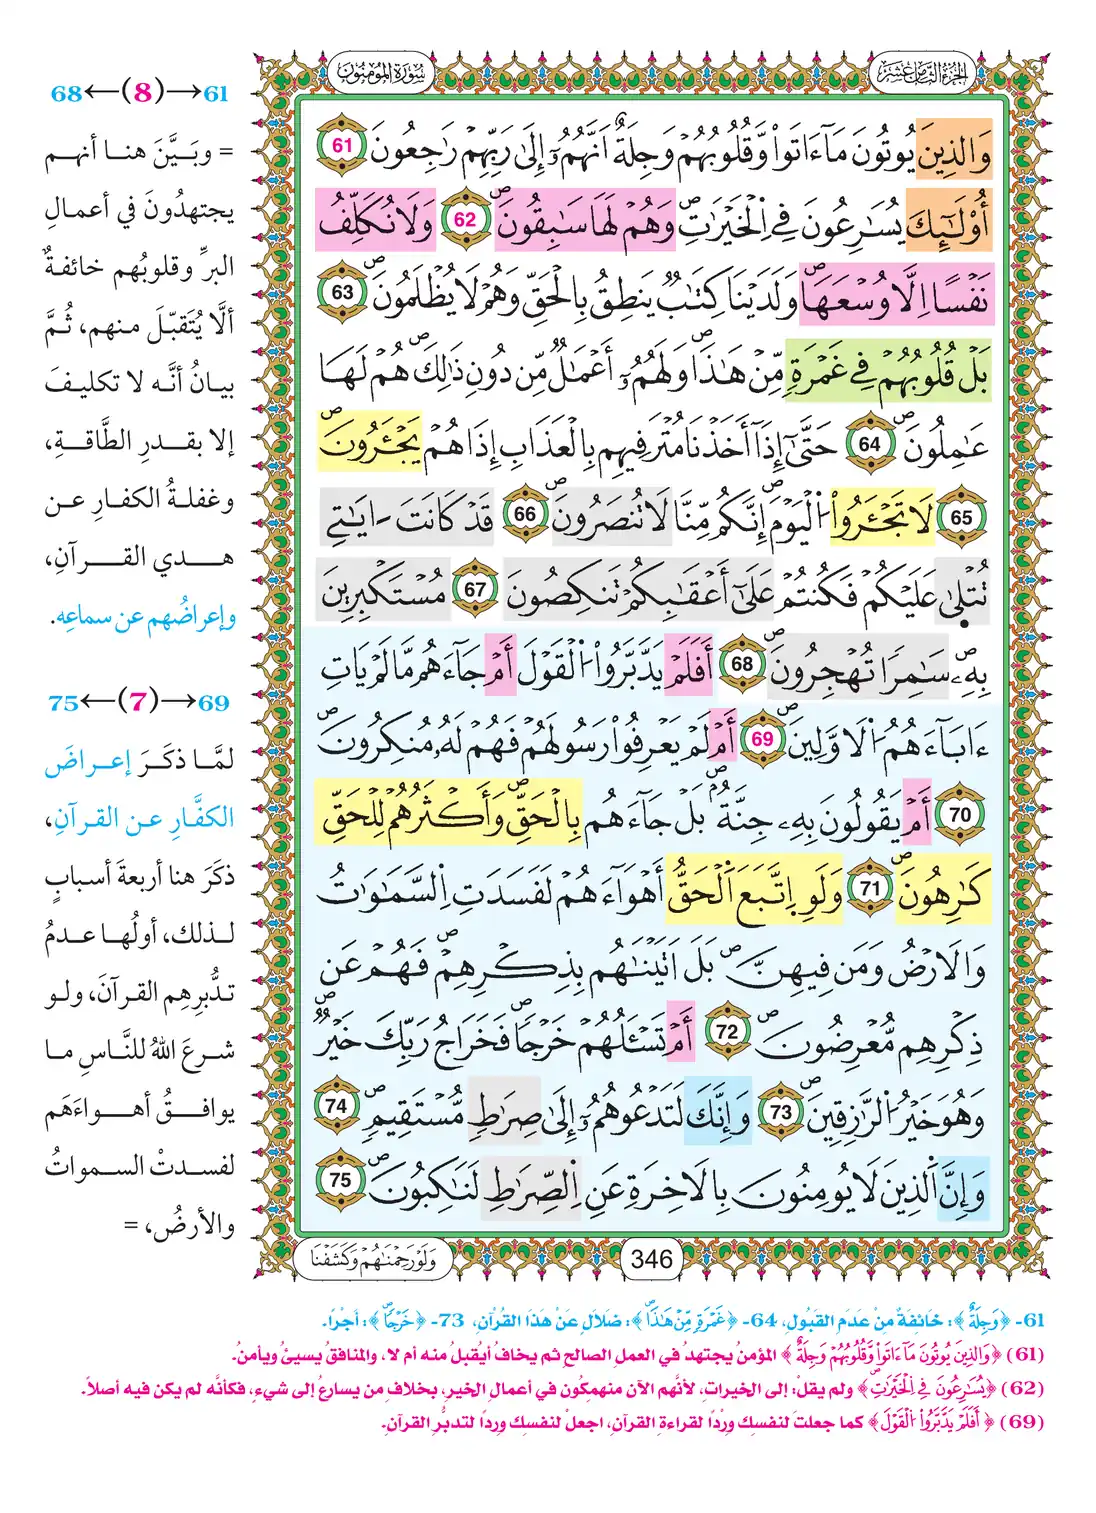 الجزء الثامن عشر
سورة المومنون
وَالذِينَ يُوتُونَ مَآ ءَاتَواْ وَّقُلُوبُهُمْ وَجِلَةٌ اَنَّهُمُۥٓ إِلَىٰ رَبِّهِمْ رَٰجِعُونَ 61
أُوْلَٰٓئِكَ يُسَٰرِعُونَ فِے اِلْخَيْرَٰتِۖ وَهُمْ لَهَا سَٰبِقُونَۖ 62 وَلَا نُكَلِّفُ
نَفْساً اِلَّا وُسْعَهَاۖ وَلَدَيْنَا كِتَٰبٌ يَنطِقُ بِالْحَقِّ وَهُمْ لَا يُظْلَمُونَۖ 63
بَلْ قُلُوبُهُمْ فِے غَمْرَةٍ مِّنْ هَٰذَاۖ وَلَهُمُۥٓ أَعْمَٰلٌ مِّن دُونِ ذَٰلِكَۖ هُمْ لَهَا
عَٰمِلُونَۖ 64 حَتَّىٰٓ إِذَآ أَخَذْنَا مُتْرَفِيهِم بِالْعَذَابِ إِذَا هُمْ يَجْـَٔرُونَۖ
65 لَا تَجْـَٔرُواْ اُلْيَوْمَۖ إِنَّكُم مِّنَّا لَا تُنصَرُونَۖ 66 قَدْ كَانَتَ ـ اٰيَٰتِے
تُتْلَىٰ عَلَيْكُمْ فَكُنتُمْ عَلَىٰٓ أَعْقَٰبِكُمْ تَنكِصُونَ 67 مُسْتَكْبِرِينَ
بِهِۦۖ سَٰمِراً تُهْجِرُونَۖ 68 أَفَلَمْ يَدَّبَّرُواْ اُلْقَوْلَ أَمْ جَآءَهُم مَّا لَمْ يَاتِ
ءَابَآءَهُمُ اُلَاوَّلِينَۖ 69 أَمْ لَمْ يَعْرِفُواْ رَسُولَهُمْ فَهُمْ لَهُۥ مُنكِرُونَۖ
70 أَمْ يَقُولُونَ بِهِۦ جِنَّةُۢۖ بَلْ جَآءَهُم بِالْحَقِّۖ وَأَكْثَرُهُمْ لِلْحَقِّ
كَٰرِهُونَۖ 71 وَلَوِ اِتَّبَعَ اَلْحَقُّ أَهْوَآءَهُمْ لَفَسَدَتِ اِلسَّمَٰوَٰتُ
وَالَارْضُ وَمَن فِيهِنَّۖ بَلَ اَتَيْنَٰهُم بِذِكْرِهِمْۖ فَهُمْ عَن
ذِكْرِهِم مُّعْرِضُونَۖ 72 أَمْ تَسْـَٔلُهُمْ خَرْجاًۖ فَخَرَاجُ رَبِّكَ خَيْرٌۖ
وَهُوَ خَيْرُ اُلرَّٰزِقِينَۖ 73 وَإِنَّكَ لَتَدْعُوهُمُۥٓ إِلَىٰ صِرَٰطٍ مُّسْتَقِيمٍۖ 74
وَإِنَّ اَلذِينَ لَا يُومِنُونَ بِالَاخِرَةِ عَنِ اِلصِّرَٰطِ لَنَٰكِبُونَۖ 75
346
وَلَوْ رَحِمْنَٰهُمْ وَكَشَفْنَا
61→(8)←68
= وبَيَّنَ هنا أنهم
يجتهدُونَ في أعمالِ
البرِّ وقلوبُهم خائفةٌ
ألَّا يُتَقبّلَ منهم، ثُمَّ
بيانُ أنَّه لا تكليفَ
إلا بقدرِ الطَّاقةِ،
وغفلةُ الكفارِ عن
هدي القرآنِ،
وإعراضُهم عن سماعِه.
69→(7)←75
لمَّا ذكَرَ إعراضَ
الكفَّارِ عن القرآنِ،
ذكَرَ هنا أربعةَ أسبابٍ
لذلك، أولُها عدمُ
تدُّبرِهِم القرآنَ، ولو
شرعَ اللهُ للنَّاسِ ما
يوافقُ أهواءَهَم
لفسدتْ السمواتُ
والأرضُ، =
61- ﴿وَجِلَةٌ﴾: خَائفَةٌ مِنْ عَدَمِ القَبُولِ، 64- ﴿غَمْرَةٍ مِّنْ هَٰذَاۖ﴾: ضَلَالٍ عَنْ هَذَا القُرْآنِ، 73- ﴿خَرْجاًۖ﴾: أَجْرًا.
(61) ﴿وَالذِينَ يُوتُونَ مَآ ءَاتَواْ وَّقُلُوبُهُمْ وَجِلَةٌ﴾ المؤمنُ يجتهدُ في العملِ الصالحِ ثم يخافُ أيُقبلُ منه أم لا، والمنافقُ يسيئُ ويأمنُ.
(62) ﴿يُسَٰرِعُونَ فِے اِلْخَيْرَٰتِۖ﴾ ولم يقلْ: إلى الخيرات، لأنَّهم الآن منهمِكُون في أعمالِ الخيرِ، بخلافِ من يسارعُ إلى شيءٍ، فكأنَّه لم يكن فيه أصلاً.
(69) ﴿أَفَلَمْ يَدَّبَّرُواْ اُلْقَوْلَ﴾ كما جعلتَ لنفسِكَ وِرْدًا لقراءةِ القرآنِ، اجعلْ لنفسِكَ وِردًا لتدبُّرِ القرآنِ.